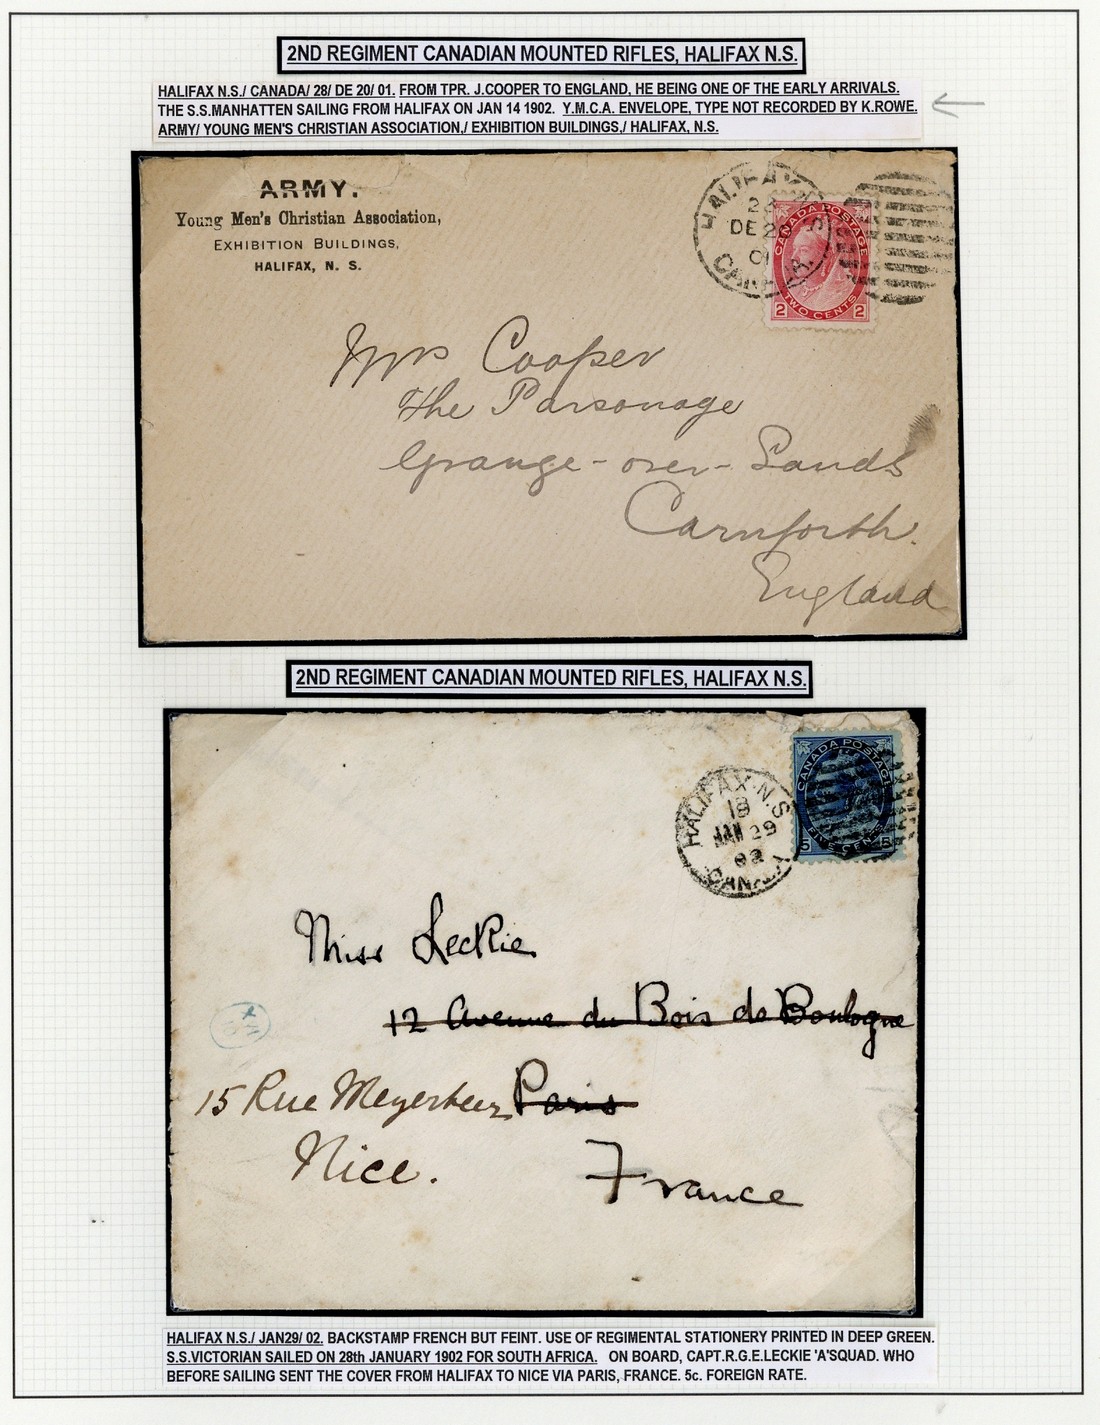 2ND REGIMENT CANADIAN MOUNTED RIFLES, HALIFAX N.S.
HALIFAX N.S./ CANADA/ 28/ DE 20/ 01. FROM TPR. J.COOPER TO ENGLAND, HE BEING ONE OF THE EARLY ARRIVALS.
THE S.S.MANHATTEN SAILING FROM HALIFAX ON JAN 14 1902. Y.M.C.A. ENVELOPE, TYPE NOT RECORDED BY K.ROWE.
ARMY/ YOUNG MEN'S CHRISTIAN ASSOCIATION,/ EXHIBITION BUILDINGS,/ HALIFAX, N.S.
ARMY.
Young Men's Christian Association,
EXHIBITION BUILDINGS,
HALIFAX, N. S.
HALIFAX
DE 20
01
CANADA POSTAGE
2 TWO CENTS 2
Mrs Cooper
The Parsonage
Grange-over-Sands
Carnforth.
England
2ND REGIMENT CANADIAN MOUNTED RIFLES, HALIFAX N.S.
HALIFAX N.S.
18
JAN 29
02
CANADA
CANADA POSTAGE
5 FIVE CENTS 5
Miss Leckie
12 Avenue du Bois de Boulogne
15 Rue Meyerbeer Paris
Nice.
France
HALIFAX N.S./ JAN29/ 02. BACKSTAMP FRENCH BUT FEINT. USE OF REGIMENTAL STATIONERY PRINTED IN DEEP GREEN.
S.S.VICTORIAN SAILED ON 28th JANUARY 1902 FOR SOUTH AFRICA. ON BOARD, CAPT.R.G.E.LECKIE 'A'SQUAD. WHO
BEFORE SAILING SENT THE COVER FROM HALIFAX TO NICE VIA PARIS, FRANCE. 5c. FOREIGN RATE.